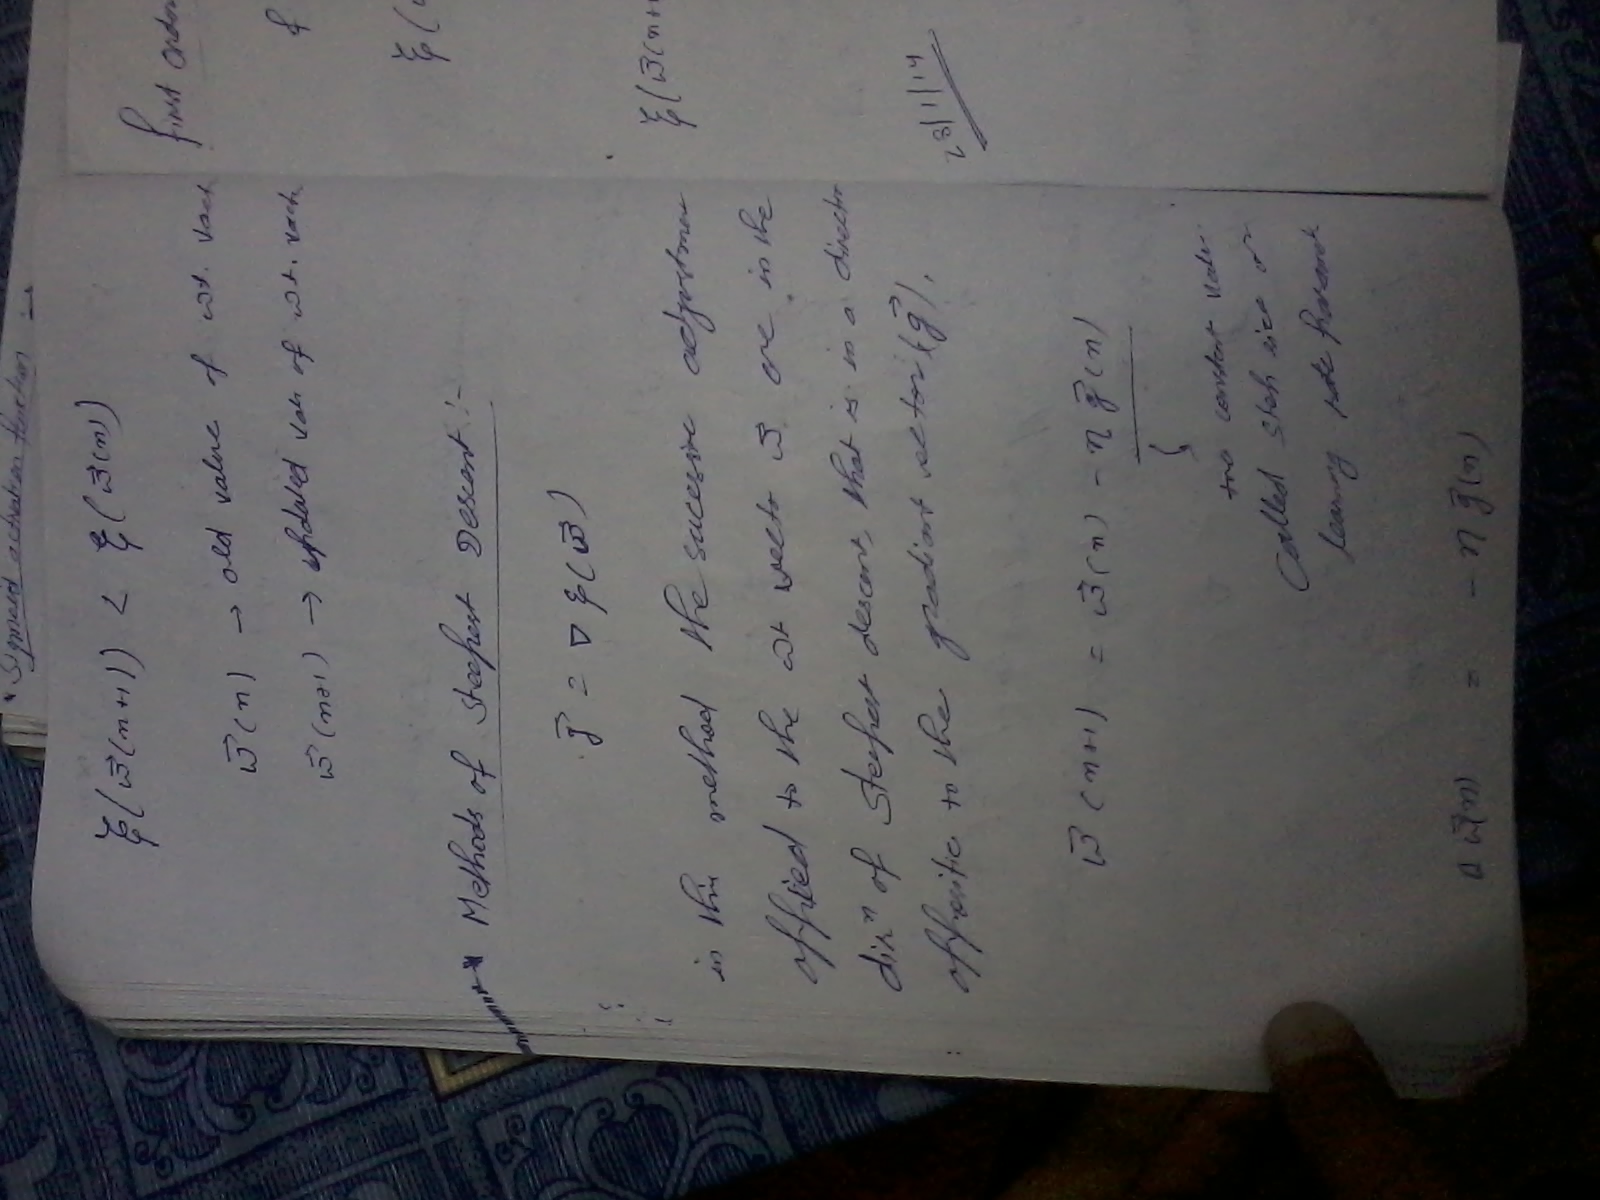 ξ(w⃗(n+1)) < ξ(w⃗(n))
w⃗(n) → old value of wt. vect
w⃗(n+1) → updated val of wt. vect.
* Methods of Steepest Descent :-
g⃗ = ∇ ξ(w⃗)
in this method the successive adjustment
applied to the wt vect w⃗ are in the
dirⁿ of steepest descent, that is in a direct
opposite to the gradient vector (g⃗).
w⃗(n+1) = w⃗(n) - η g⃗(n)
constant value
Called step size or
learning rate
Δ w⃗(n) = - η g⃗(n)
Sigmoid activation function →
first order
ξ(
ξ(w⃗(n+
28/1/14